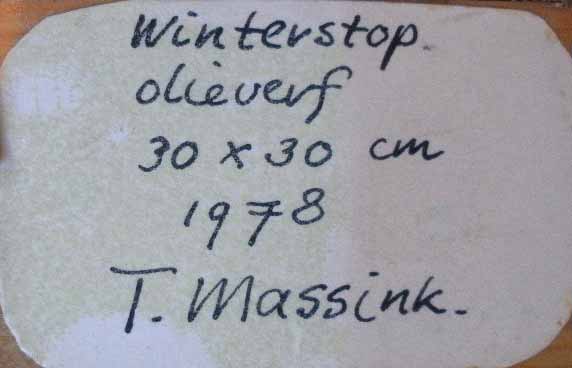 Winterstop.
olieverf
30 x 30 cm
1978
T. Massink.